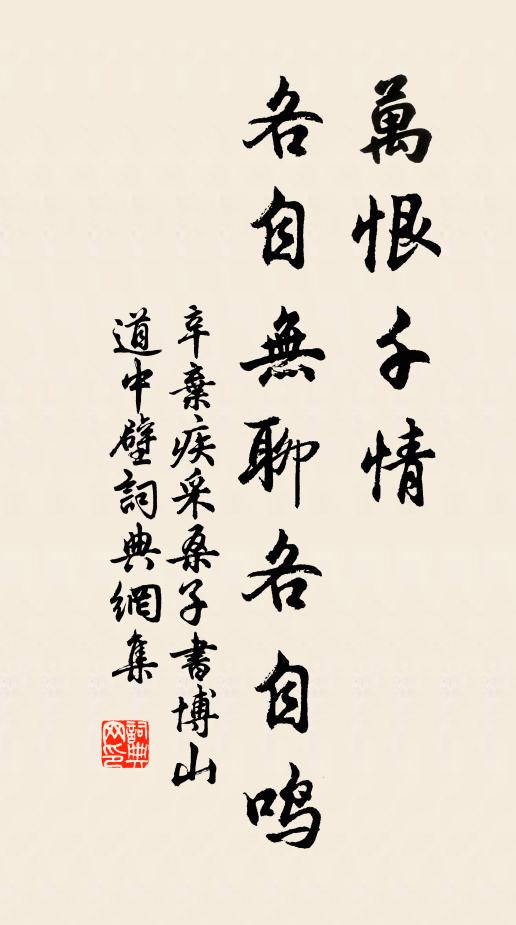 萬恨千情
各自無聊各自鳴
辛棄疾采桑子書博山
道中壁詞典網集
詞典
网印